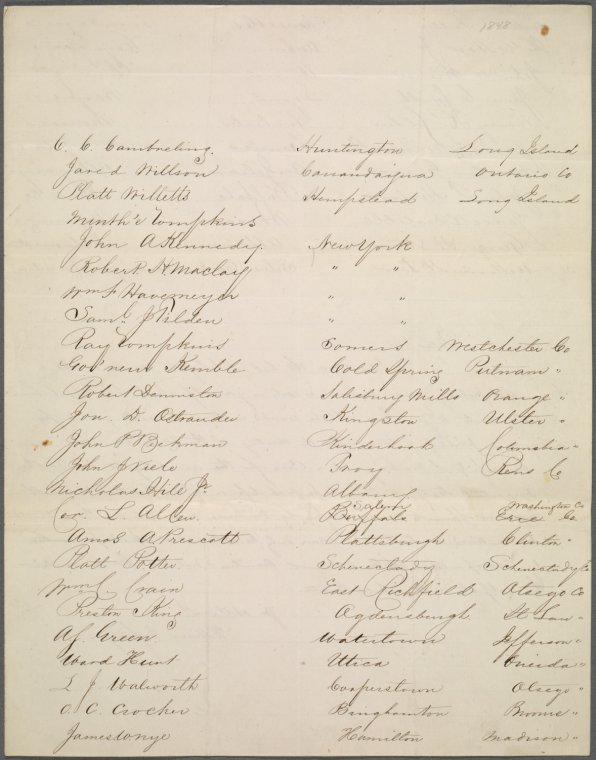 1848
C. C. Cambreling. Huntington Long Island
Jared Willson Canandaigua Ontario Co
Platt Willetts Hempstead Long Island
Minth'e Tompkins
John A Kennedy. New York
Robert H Maclay " "
Wm F Havemeyer " "
Saml J Tilden " "
Ray Tompkins Somers Westchester Co
Gov'neur Kemble Cold Spring Putnam "
Robert Denniston Salisbury Mills Orange "
Jon. D. Ostrander Kingston Ulster "
John P Bekman Kinderhook Columbia "
John J Viele Troy Rens C
Nicholas Hill Jr. Albany
Cor. L. Allen. Salem Washington Co
Buffalo Erie Co
Amos A Prescott Plattsburgh Clinton "
Platt Potter Schenectady Schenectady Co
Wm C. Crain East Richfield Otsego Co
Preston King Ogdensburgh St Law "
A. Green. Watertown Jefferson "
Ward Hunt Utica Oneida "
L J. Walworth Cooperstown Otsego "
O. C. Crocker Binghamton Broome "
James W Nye Hamilton Madison "